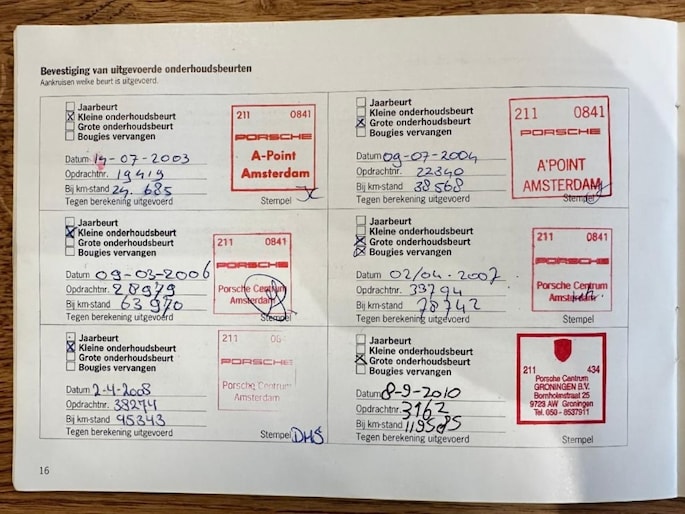 Bevestiging van uitgevoerde onderhoudsbeurten
Aankruisen welke beurt is uitgevoerd.
Jaarbeurt
Kleine onderhoudsbeurt
Grote onderhoudsbeurt
Bougies vervangen
211 0841
PORSCHE
A-Point
Amsterdam
Datum 14-07-2003
Opdrachtnr. 19419
Bij km-stand 24.685
Tegen berekening uitgevoerd Stempel
Jaarbeurt
Kleine onderhoudsbeurt
Grote onderhoudsbeurt
Bougies vervangen
211 0841
PORSCHE
A'POINT
AMSTERDAM
Datum 09-07-2004
Opdrachtnr. 22340
Bij km-stand 38568
Tegen berekening uitgevoerd Stempel
Jaarbeurt
Kleine onderhoudsbeurt
Grote onderhoudsbeurt
Bougies vervangen
211 0841
PORSCHE
Porsche Centrum
Amsterdam
Datum 09-03-2006
Opdrachtnr. 28979
Bij km-stand 63970
Tegen berekening uitgevoerd Stempel
Jaarbeurt
Kleine onderhoudsbeurt
Grote onderhoudsbeurt
Bougies vervangen
211 0841
PORSCHE
Porsche Centrum
Amsterdam
Datum 02/04-2007
Opdrachtnr. 33794
Bij km-stand 78742
Tegen berekening uitgevoerd Stempel
Jaarbeurt
Kleine onderhoudsbeurt
Grote onderhoudsbeurt
Bougies vervangen
211
PORSCHE
Porsche Centrum
Amsterdam
Datum 2-4-2008
Opdrachtnr. 38274
Bij km-stand 95343
Tegen berekening uitgevoerd Stempel DHS
Jaarbeurt
Kleine onderhoudsbeurt
Grote onderhoudsbeurt
Bougies vervangen
211 434
Porsche Centrum
GRONINGEN B.V.
Bornholmstraat 25
9723 AW Groningen
Tel. 050 - 8537911
Datum 8-9-2010
Opdrachtnr. 3162
Bij km-stand 119585
Tegen berekening uitgevoerd Stempel
16